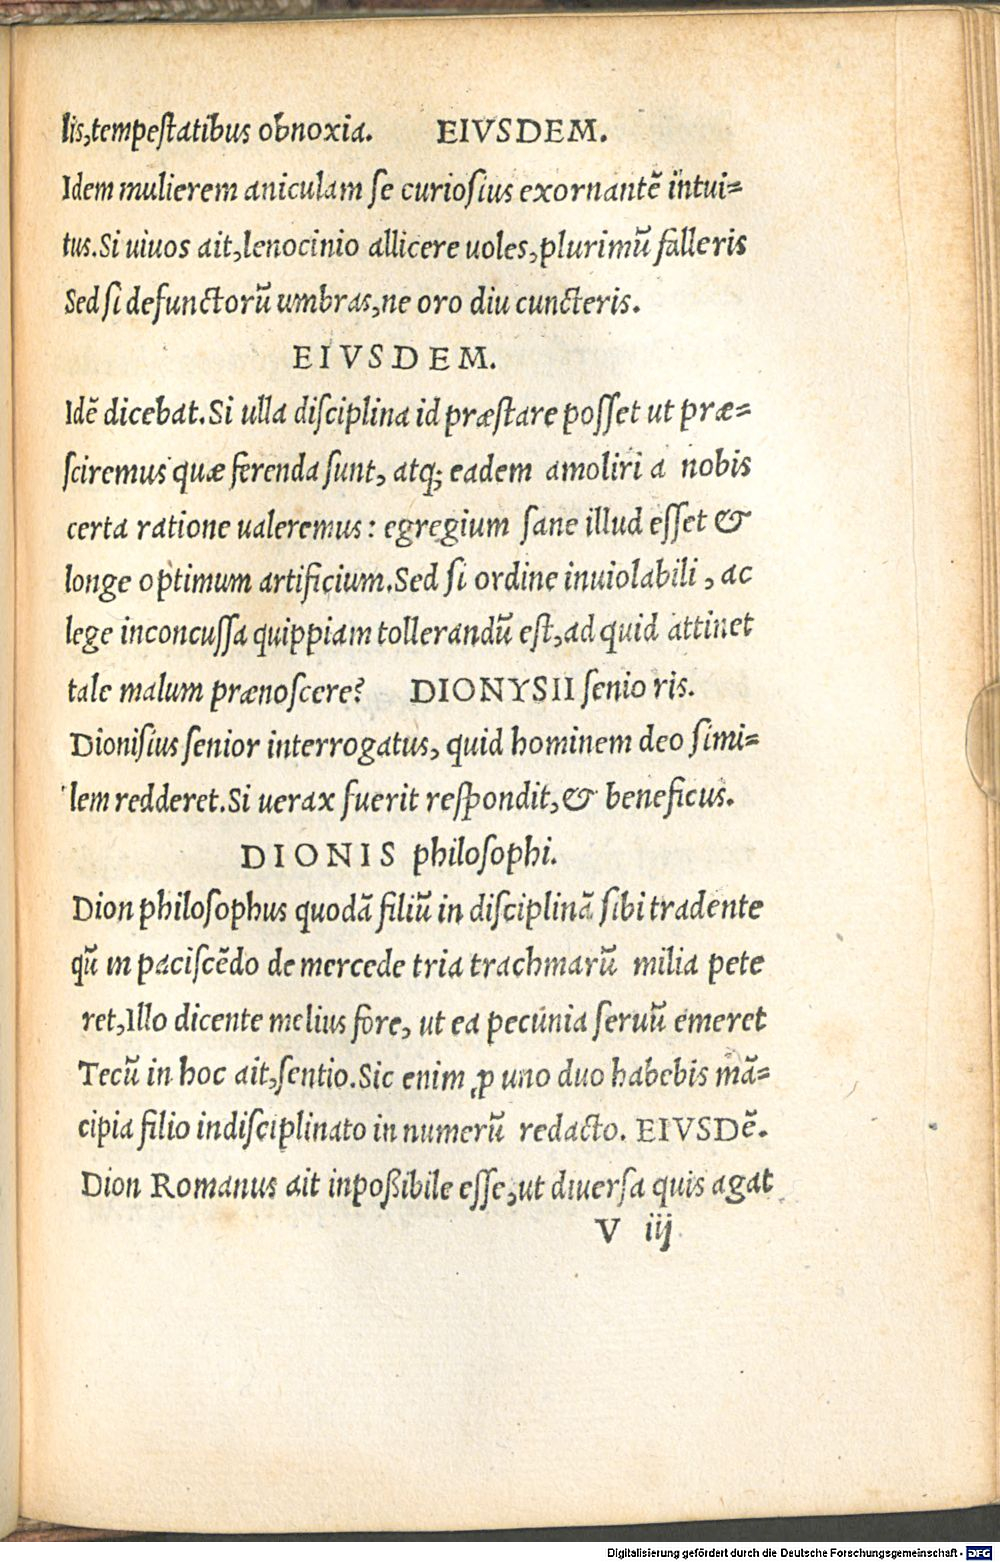 lis,tempeſtatibus obnoxia. EIVSDEM.
Idem mulierem aniculam ſe curioſius exornantē intui=
tus.Si uiuos ait,lenocinio allicere uoles,plurimū falleris
Sed ſi defunctorū umbras,ne oro diu cuncteris.
EIVSDEM.
Idē dicebat.Si ulla diſciplina id præſtare poſſet ut præ=
ſciremus quæ ferenda ſunt, atq; eadem amoliri a nobis
certa ratione ualeremus: egregium ſane illud eſſet &
longe optimum artificium.Sed ſi ordine inuiolabili , ac
lege inconcuſſa quippiam tollerandū eſt,ad quid attinet
tale malum prænoſcere? DIONYSII ſenio ris.
Dioniſius ſenior interrogatus, quid hominem deo ſimi=
lem redderet.Si uerax fuerit reſpondit,& beneficus.
DIONIS philoſophi.
Dion philoſophus quodā filiū in diſciplinā ſibi tradente
qū in paciſcēdo de mercede tria trachmarū milia pete
ret,Illo dicente melius fore, ut ea pecunia ſeruū emeret
Tecū in hoc ait,ſentio.Sic enim ꝓ uno duo habebis mā=
cipia filio indiſciplinato in numerū redacto. EIVSDē.
Dion Romanus ait inpoßibile eſſe,ut diuerſa quis agat
V iij
Digitalisierung gefördert durch die Deutsche Forschungsgemeinschaft - DFG